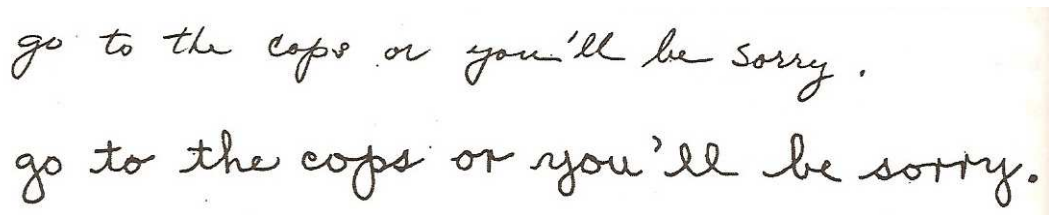 go to the cops or you'll be sorry.
go to the cops or you'll be sorry.